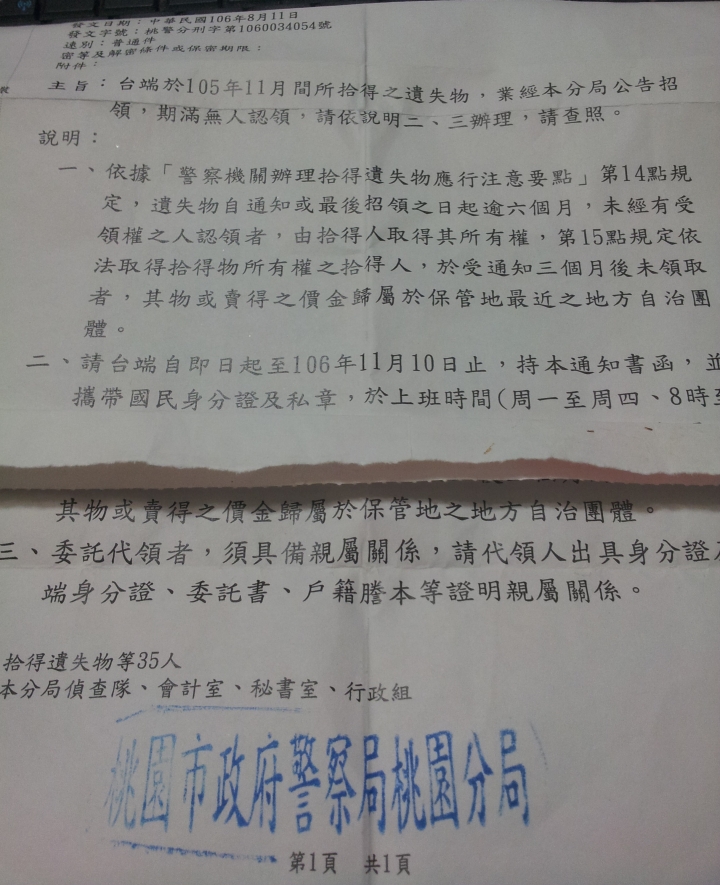 發文日期：中華民國106年8月11日
發文字號：桃警分刑字第1060034054號
速別：普通件
密等及解密條件或保密期限：
附件：
主旨：台端於105年11月間所拾得之遺失物，業經本分局公告招
領，期滿無人認領，請依說明二、三辦理，請查照。
說明：
一、依據「警察機關辦理拾得遺失物應行注意要點」第14點規
定，遺失物自通知或最後招領之日起逾六個月，未經有受
領權之人認領者，由拾得人取得其所有權，第15點規定依
法取得拾得物所有權之拾得人，於受通知三個月後未領取
者，其物或賣得之價金歸屬於保管地最近之地方自治團
體。
二、請台端自即日起至106年11月10日止，持本通知書函，並
攜帶國民身分證及私章，於上班時間(周一至周四、8時至
其物或賣得之價金歸屬於保管地之地方自治團體。
三、委託代領者，須具備親屬關係，請代領人出具身分證及
端身分證、委託書、戶籍謄本等證明親屬關係。
拾得遺失物等35人
本分局偵查隊、會計室、秘書室、行政組
桃園市政府警察局桃園分局
第1頁 共1頁